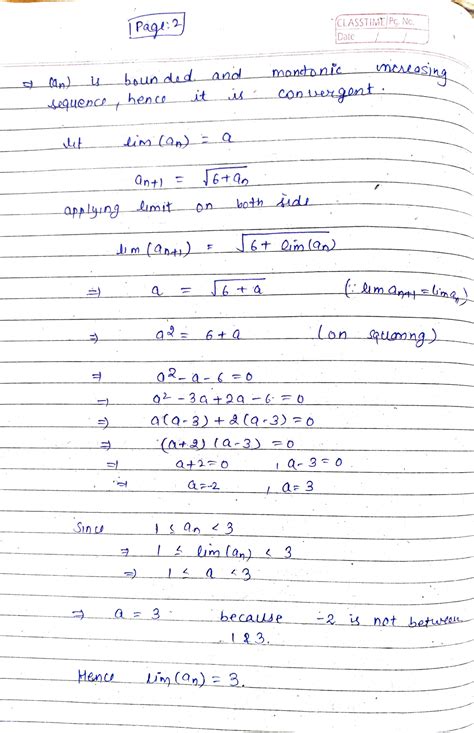 Page: 2
CLASSTIME Pg. No.
Date / /
⇒ (an) is bounded and montonic increasing
sequence, hence it is convergent.
let lim (an) = a
an+1 = √6+an
applying limit on both side
lim (an+1) = √6+ lim(an)
⇒ a = √6+a (∵ lim an+1 = lim an)
⇒ a² = 6+a (on squaring)
⇒ a²-a-6=0
⇒ a²-3a+2a-6=0
⇒ a(a-3)+2(a-3)=0
⇒ (a+2)(a-3)=0
⇒ a+2=0 , a-3=0
⇒ a=-2 , a=3
Since 1 ≤ an < 3
⇒ 1 ≤ lim(an) < 3
⇒ 1 ≤ a < 3
⇒ a = 3 because -2 is not between
1 & 3.
Hence lim(an) = 3.